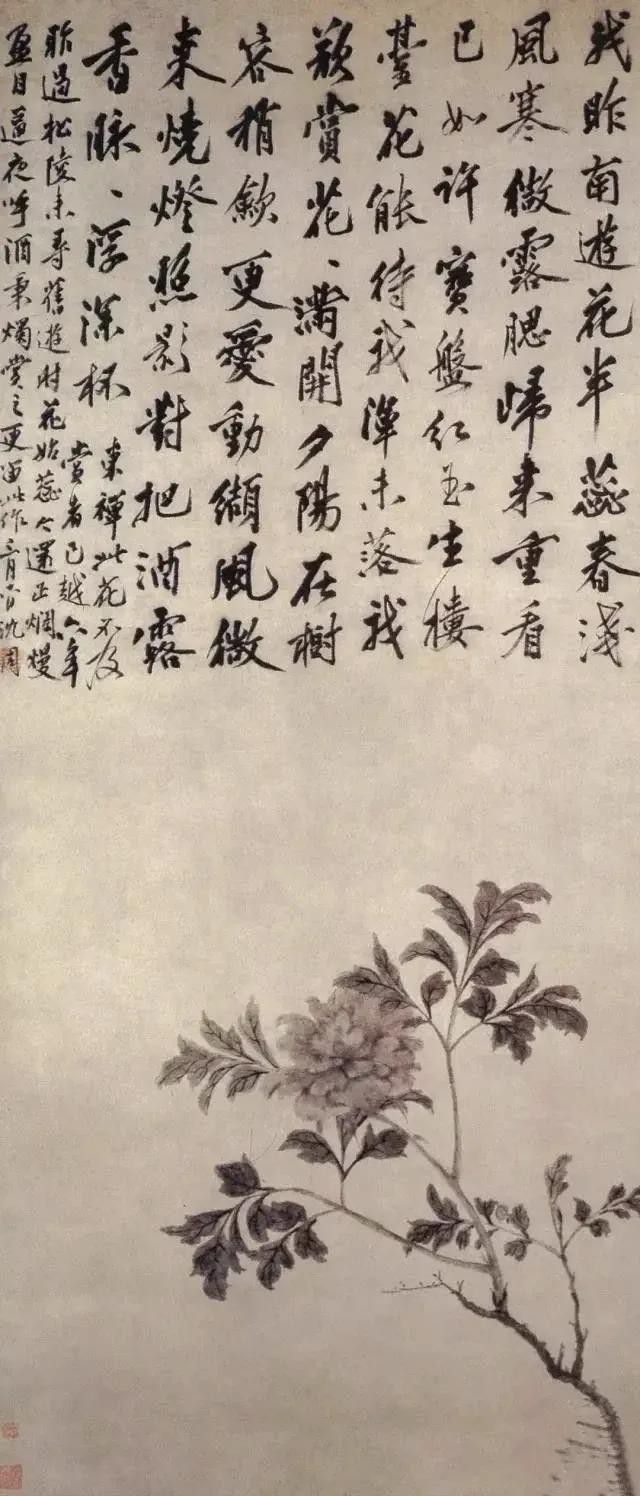 我昨南遊花半蕊春淺
風寒微露腮歸来重看
已如許寶盤紅玉生樓
臺花能待我渾未落我
欲賞花、滿開夕陽在樹
容稍歛更愛動纈風微
来燒燈照影對把酒露
香脉、浮深杯
東禪此花不及
賞者已越六年
昨過松陵未尋舊遊时花始蕊今還正爛熳
盈目遂夜呼酒秉燭賞之更留此作沈周